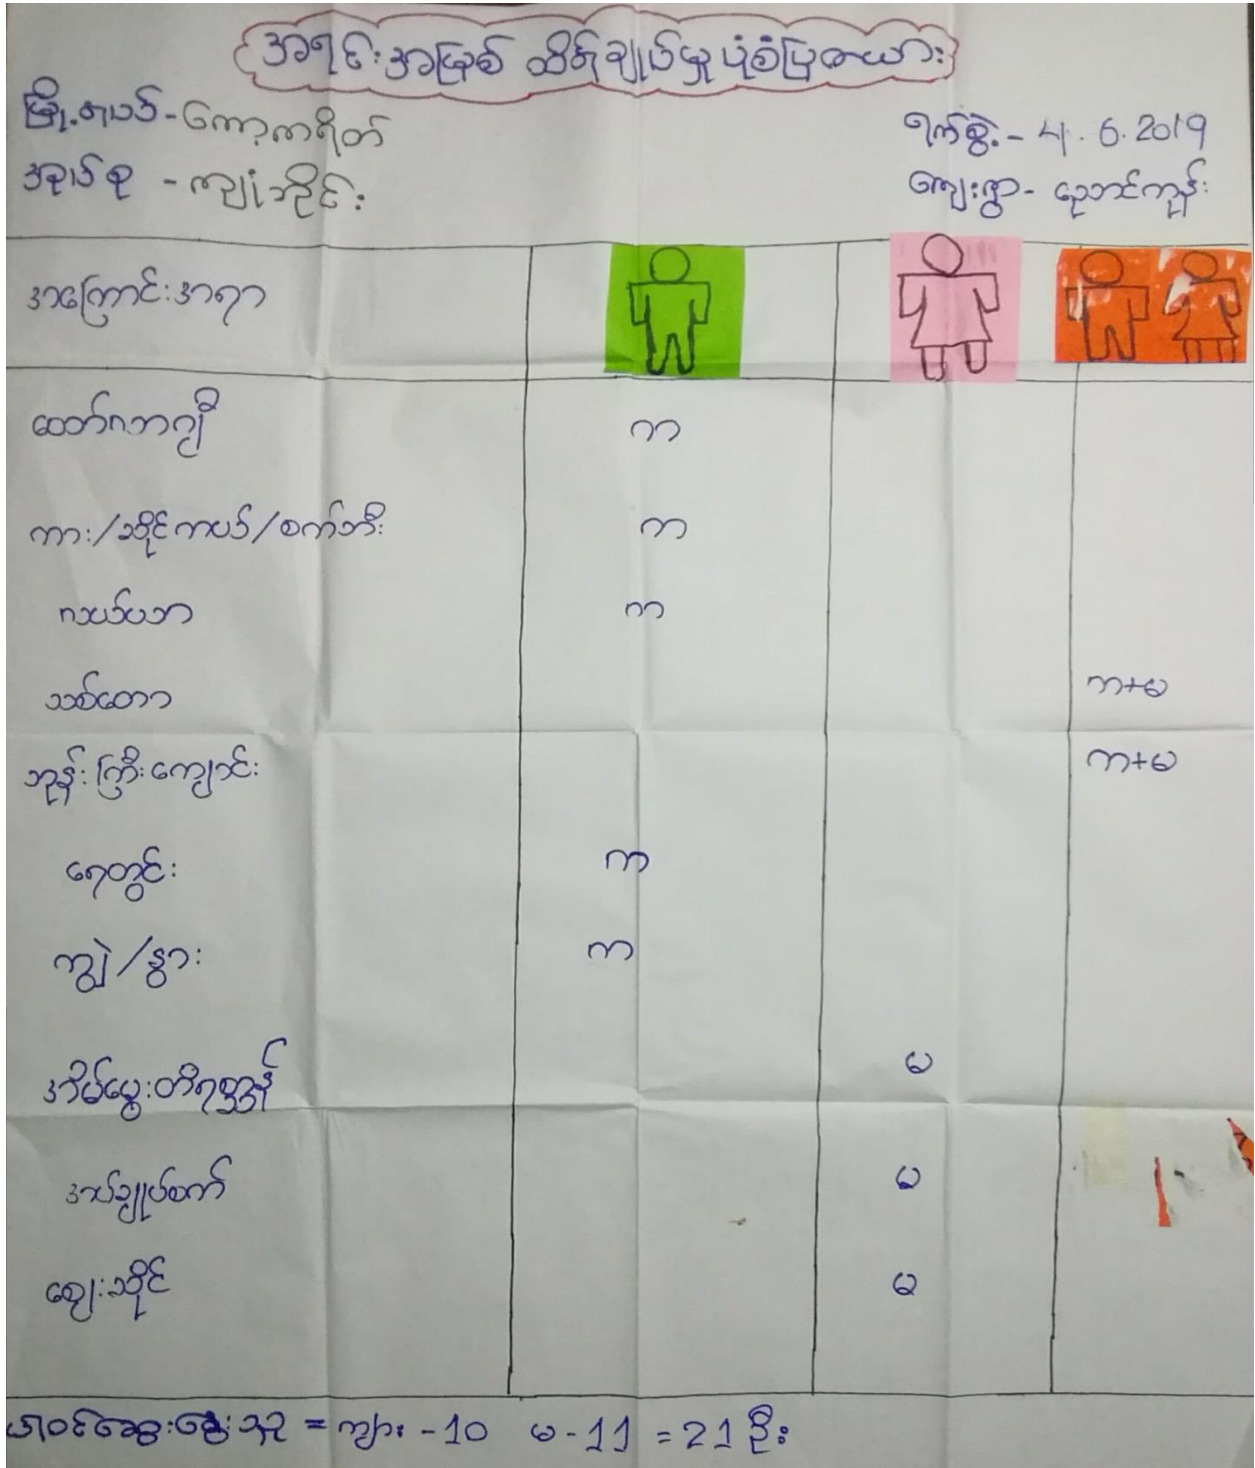 အရင်းအမြစ် ထိန်းချုပ်မှု ပုံစံပြဇယား
မြို့နယ် - ကော့ကရိတ်
ရက်စွဲ - 4.6.2019
အုပ်စု - ကျုံဘိုင်း
ကျေးရွာ - ညောင်ကုန်း
အကြောင်းအရာ
ထော်လာဂျီ က
ကား/ဆိုင်ကယ်/စက်ဘီး က
လယ်ယာ က
သစ်တော က+မ
ဘုန်းကြီးကျောင်း က+မ
ရေတွင်း က
ကျွဲ/နွား က
အိမ်မွေးတိရစ္ဆာန် မ
အပ်ချုပ်စက် မ
ဈေးဆိုင် မ
ပါဝင်ဆွေးနွေးသူ = ကျား - 10 မ - 11 = 21 ဦး